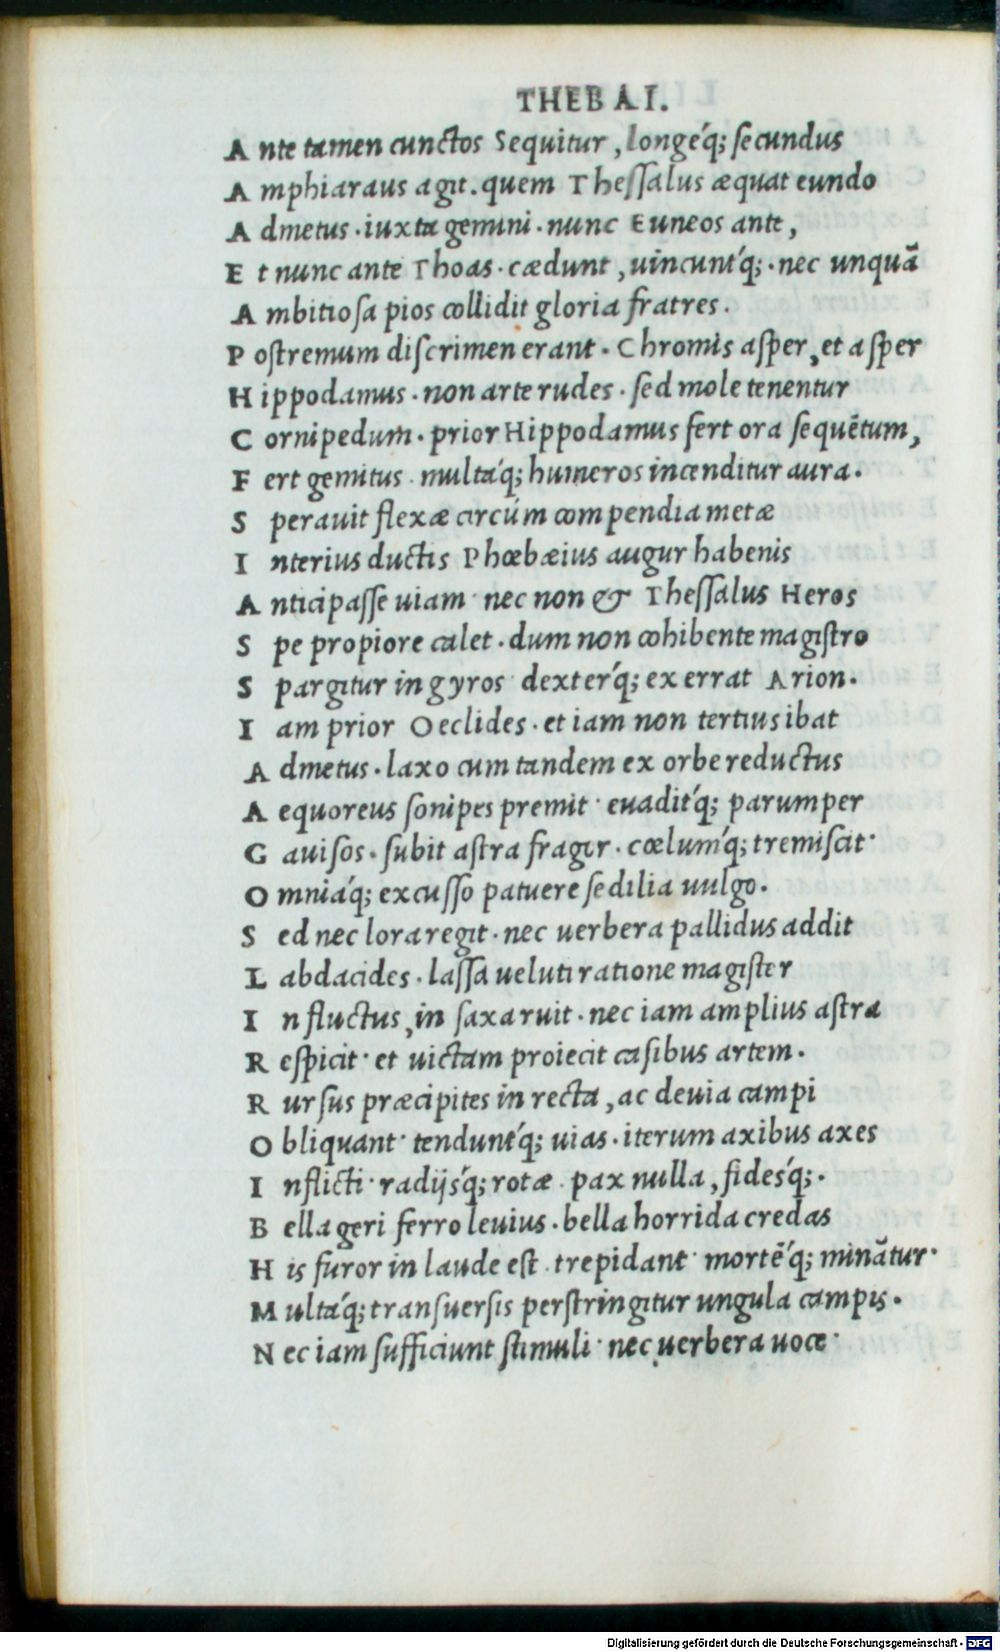 THEBAI.
Ante tamen cunctos Sequitur, longeq́; secundus
Amphiaraus agit. quem Thessalus æquat eundo
Admetus. iuxta gemini. nunc Euneos ante,
Et nunc ante Thoas. cædunt, uincuntq́;. nec unquã
Ambitiosa pios collidit gloria fratres.
Postremum discrimen erant. Chromis asper, et asper
Hippodamus. non arte rudes. sed mole tenentur
Cornipedum. prior Hippodamus fert ora sequẽtum,
Fert gemitus. multaq́; humeros incenditur aura.
Sperauit flexæ circúm compendia metæ
Interius ductis Phœbæius augur habenis
Anticipasse uiam. nec non & Thessalus Heros
Spe propiore calet. dum non cohibente magistro
Spargitur in gyros. dexterq́; exerrat Arion.
Iam prior Oeclides. et iam non tertius ibat
Admetus. laxo cum tandem ex orbe reductus
Aequoreus sonipes premit. euaditq́; parumper
Gauisos. subit astra fragor. cœlumq́; tremiscit.
Omniaq́; excusso patuere sedilia uulgo.
Sed nec lora regit. nec uerbera pallidus addit
Labdacides. lassa ueluti ratione magister
In fluctus, in saxa ruit. nec iam amplius astra
Respicit. et uictam proiecit casibus artem.
Rursus præcipites in recta, ac deuia campi
Obliquant. tenduntq́; uias. iterum axibus axes
Inflicti. radijsq́; rotæ. pax nulla, fidesq́;.
Bella geri ferro leuius. bella horrida credas
His furor in laude est. trepidant. mortẽq́; minãtur.
Multaq́; transuersis perstringitur ungula campis.
Nec iam sufficiunt stimuli. nec uerbera uoce.
Digitalisierung gefördert durch die Deutsche Forschungsgemeinschaft - DFG